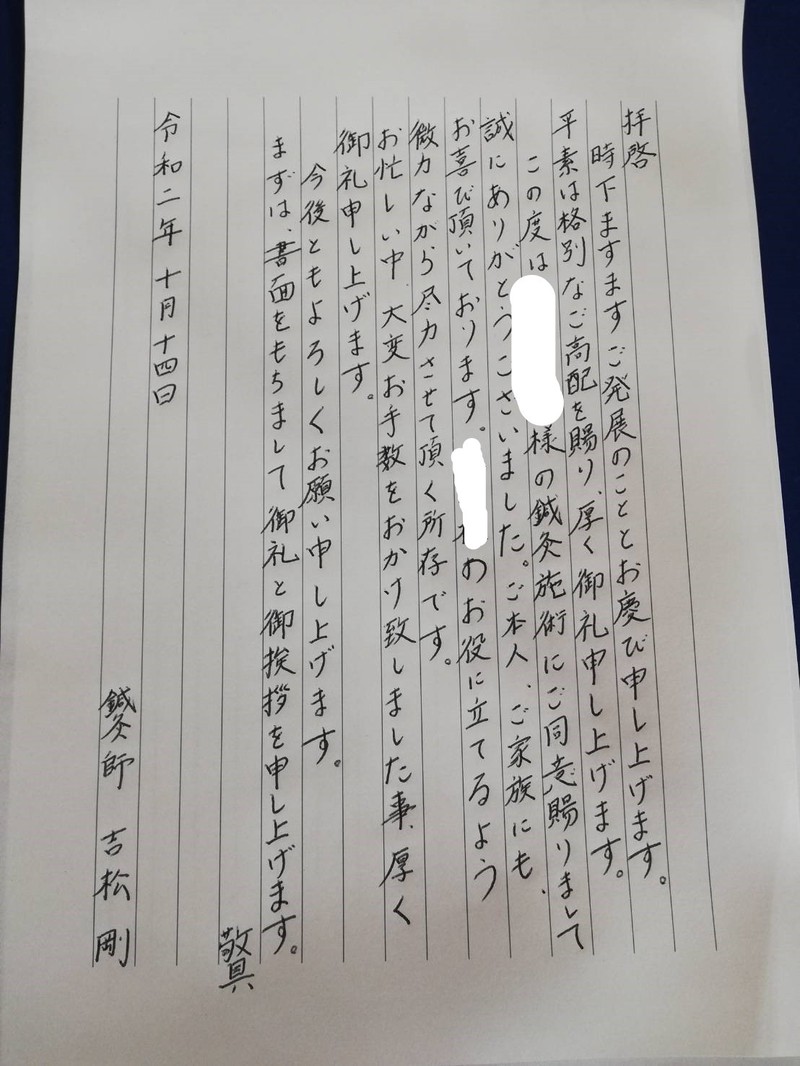 拝啓
時下ますますご発展のこととお慶び申し上げます。
平素は格別なご高配を賜り、厚く御礼申し上げます。
この度は様の鍼灸施術にご同意賜りまして
誠にありがとうございました。ご本人、ご家族にも、
お喜び頂いております。のお役に立てるよう
微力ながら尽力させて頂く所存です。
お忙しい中、大変お手数をおかけ致しました事、厚く
御礼申し上げます。
今後ともよろしくお願い申し上げます。
まずは、書面をもちまして御礼と御挨拶を申し上げます。
敬具
令和二年十月十四日
鍼灸師 吉松剛